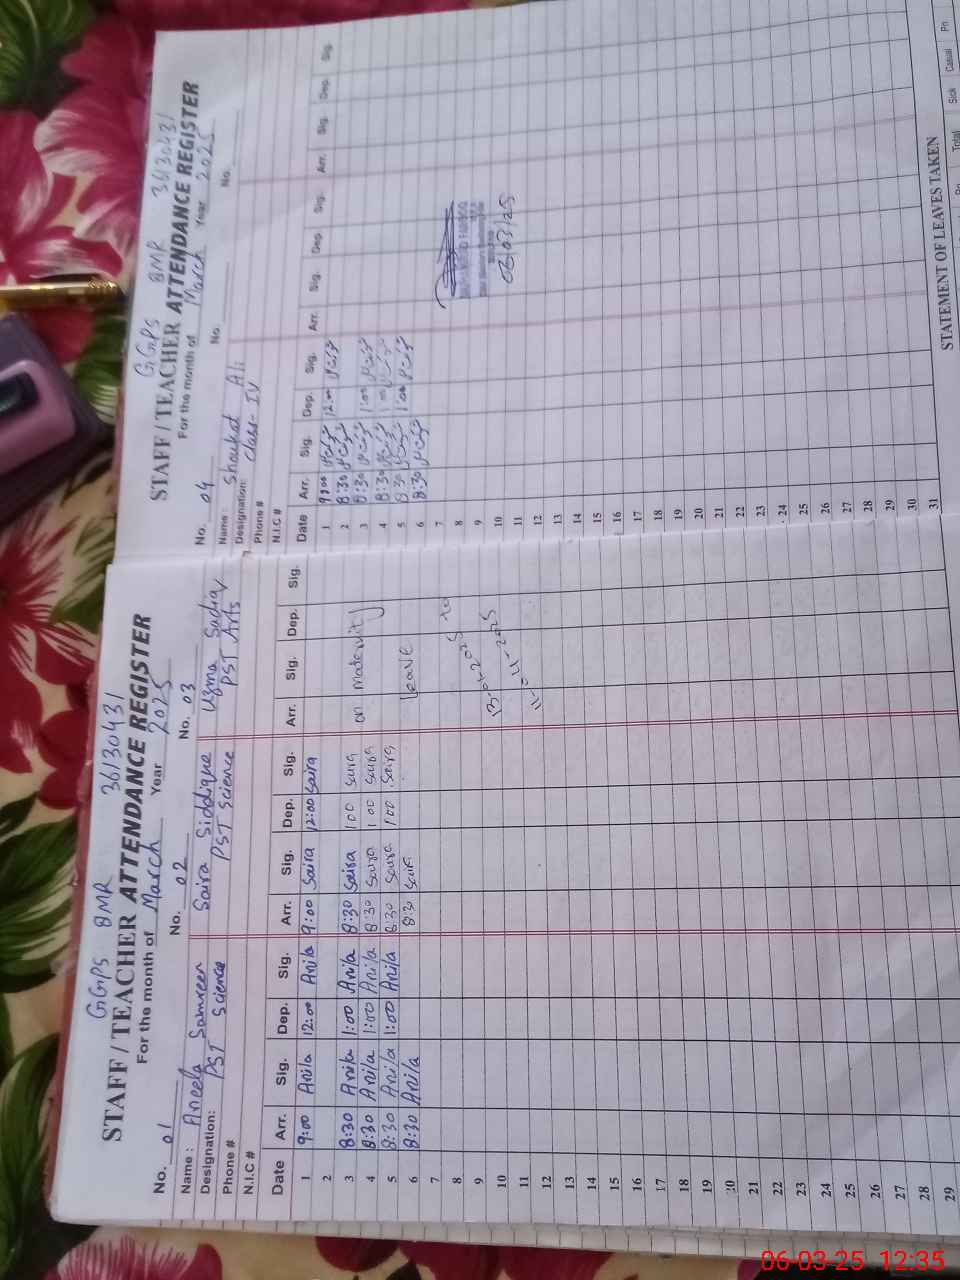 GGPS BMR 36130431
STAFF / TEACHER ATTENDANCE REGISTER
For the month of March Year 2025
No. 01 No. 02 No. 03
Name : Aneela Samreen Saira Siddique Uzma Sadiq
Designation: PST Science PST Science PST Arts
Phone #
N.I.C #
Date Arr. Sig. Dep. Sig. Arr. Sig. Dep. Sig. Arr. Sig. Dep. Sig.
1 9:00 Anila 12:00 Anila 9:00 Saira 12:00 Saira
2
3 8:30 Anila 1:00 Anila 8:30 Saira 100 Saira on maternity
4 8:30 Anila 1:00 Anila 8:30 Saira 100 Saira
5 8:30 Anila 1:00 Anila 8:30 Saira 100 Saira leave
6 8:30 Anila 8:30 Saira
7
8 to
9
10
11
12
13
14
15
16
17
18
19
20
21
22
23
24
25
26
27
28
29
GGPS BMR 36130431
STAFF / TEACHER ATTENDANCE REGISTER
For the month of March Year 2025
No. 04 No. No.
Name : Shoukat Ali
Designation: Class- IV
Phone #
N.I.C #
Date Arr. Sig. Dep. Sig. Arr. Sig. Dep. Sig. Arr. Sig. Dep. Sig.
1 9:00 12:00
2 8:30
3 8:30 1:00
4 8:30 1:00
5 8:30 1:00
6 8:30
7
8
9
10
11
12
13
14
15
16
17
18
19
20
21
22
23
24
25
26
27
28
29
30
31
STATEMENT OF LEAVES TAKEN
Total Sick Casual
06-03-25 12:35